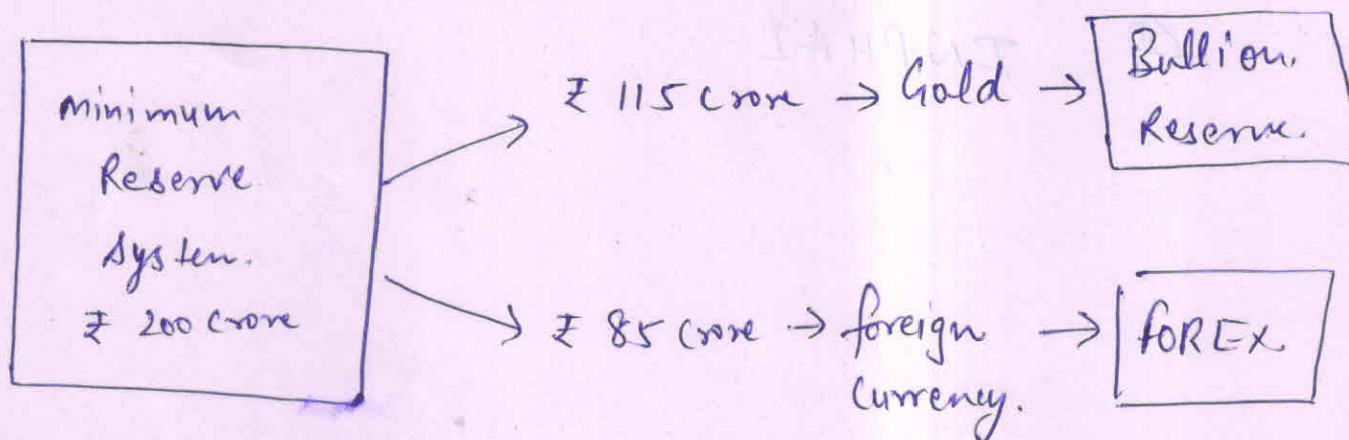 Minimum
Reserve
System.
₹ 200 Crore
₹ 115 Crore → Gold → Bullion.
Reserve.
₹ 85 Crore → foreign
currency. → FOREX.